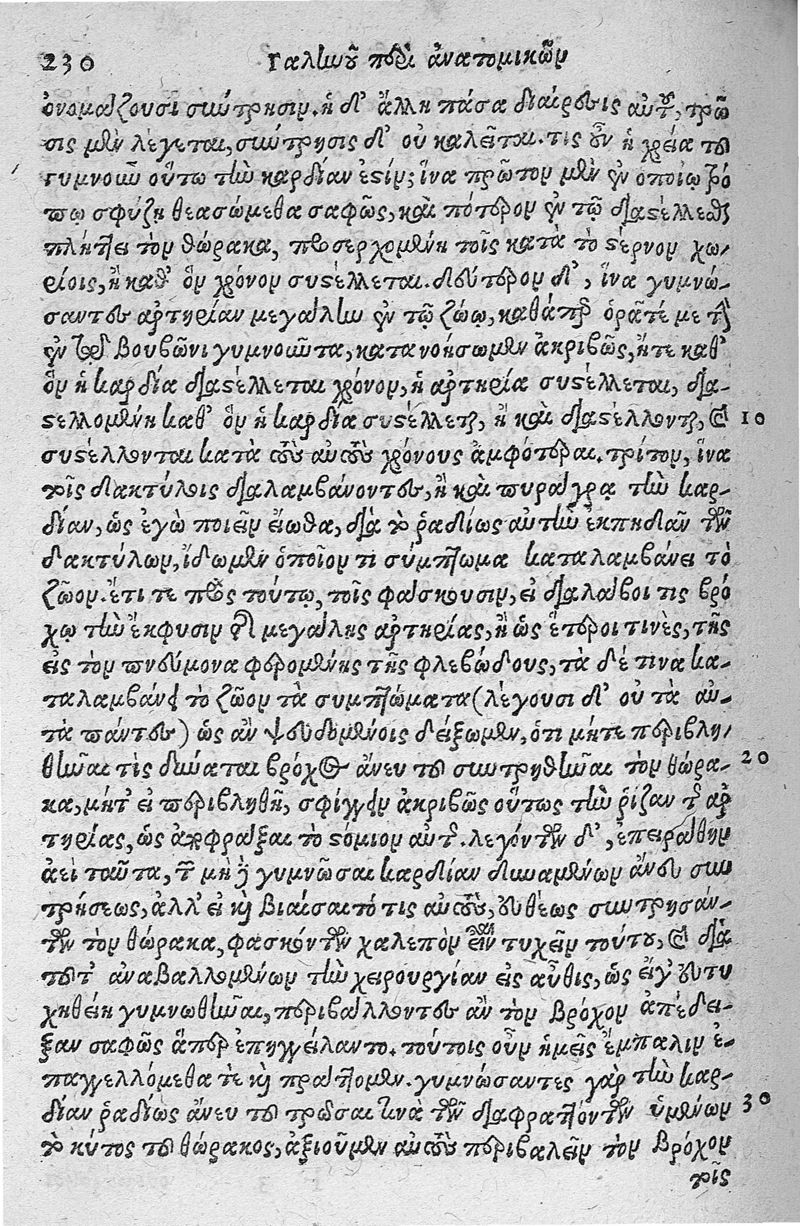 230 Γαλίωοῦ περὶ ἀνατομικῶν
ὀνομάζουσι σύντρησιν. ἡ δ' ἄλλη πάσα διαίρεσις αὐτοῦ, τρῶ
σις μὲν λέγεται, σύντρησις δ' οὐ καλεῖται. τίς οὖν ἡ χρεία τοῦ
γυμνοῦν οὕτω τὴν καρδίαν ἐστίν; ἵνα πρῶτον μὲν ἐν ὁποίῳ τρό
πῳ σφύζῃ θεασώμεθα σαφῶς, καὶ πότερον ἐν τῷ διαστέλλεσθαι
πλήττει τὸν θώρακα, προσερχομένη τοῖς κατὰ τὸ στέρνον χω-
ρίοις, ἢ καθ' ὃν χρόνον συστέλλεται. δεύτερον δ', ἵνα γυμνώ-
σαντες ἀρτηρίαν μεγάλην ἐν τῷ ζώῳ, καθάπερ ὁρᾶτέ με τὴν
ἐν τῷ βουβῶνι γυμνοῦντα, κατανοήσωμεν ἀκριβῶς, ἤτε καθ'
ὃν ἡ καρδία διαστέλλεται χρόνον, ἡ ἀρτηρία συστέλλεται, δια-
στελλομένη καθ' ὃν ἡ καρδία συστέλλεται, ἢ καὶ διαστέλλονται, καὶ 10
συστέλλονται κατὰ τοὺς αὐτοὺς χρόνους ἀμφότεραι. τρίτον, ἵνα
τοῖς δακτύλοις διαλαμβάνοντες, ἢ καὶ πυράγρᾳ τὴν καρ-
δίαν, ὡς ἐγὼ ποιεῖν εἴωθα, διὰ τὸ ῥᾳδίως αὐτὴν ἐκπηδᾶν τῶν
δακτύλων, ἴδωμεν ὁποῖόν τι σύμπτωμα καταλαμβάνει τὸ
ζῶον. ἔτι τε πρὸς τούτῳ, τοῖς φάσκουσιν, εἰ διαλάβοι τις βρό
χῳ τὴν ἔκφυσιν τῆς μεγάλης ἀρτηρίας, ἢ ὡς ἕτεροι τινὲς, τῆς
εἰς τὸν πνεύμονα φερομένης τῆς φλεβώδους, τὰ δέ τινα κα-
ταλαμβάνειν τὸ ζῶον τὰ συμπτώματα (λέγουσι δ' οὐ τὰ αὐ-
τὰ πάντες) ὡς ἂν ψευδομένοις δείξωμεν, ὅτι μήτε περιβλη-
θῆναι τὶς δύναται βρόχος ἄνευ τοῦ συντρηθῆναι τὸν θώρα- 20
κα, μήτ' εἰ περιβληθῇ, σφίγγειν ἀκριβῶς οὕτως τὴν ῥίζαν τῆς ἀρ
τηρίας, ὡς ἀποφράξαι τὸ στόμιον αὐτῆς. λεγόντων δ', ἐπειράθην
ἀεὶ ταῦτα, τῶν μηδὲ γυμνῶσαι καρδίαν δυναμένων ἄνευ συν
τρήσεως, ἀλλ' εἰ καὶ βιάσαιτό τις αὐτοὺς, εὐθέως συντρησάν-
των τὸν θώρακα, φασκόντων χαλεπὸν εἶναι τυχεῖν τούτου, καὶ διὰ
τοῦτ' ἀναβαλλομένων τὴν χειρουργίαν εἰς αὖθις, ὡς εἴγ' εὐτυ
χηθείη γυμνωθῆναι, περιβάλλοντες ἂν τὸν βρόχον ἀπέδει-
ξαν σαφῶς ἅπερ ἐπηγγείλαντο. τούτοις οὖν ἡμεῖς ἔμπαλιν ἐ-
παγγελλόμεθα τὲ καὶ πράττομεν. γυμνώσαντες γὰρ τὴν καρ-
δίαν ῥᾳδίως ἄνευ τοῦ τρῶσαι τινὰ τῶν διαφραττόντων ὑμένων 30
τὸ κύτος τοῦ θώρακος, ἀξιοῦμεν αὐτοὺς περιβαλεῖν τὸν βρόχον
τοῖς